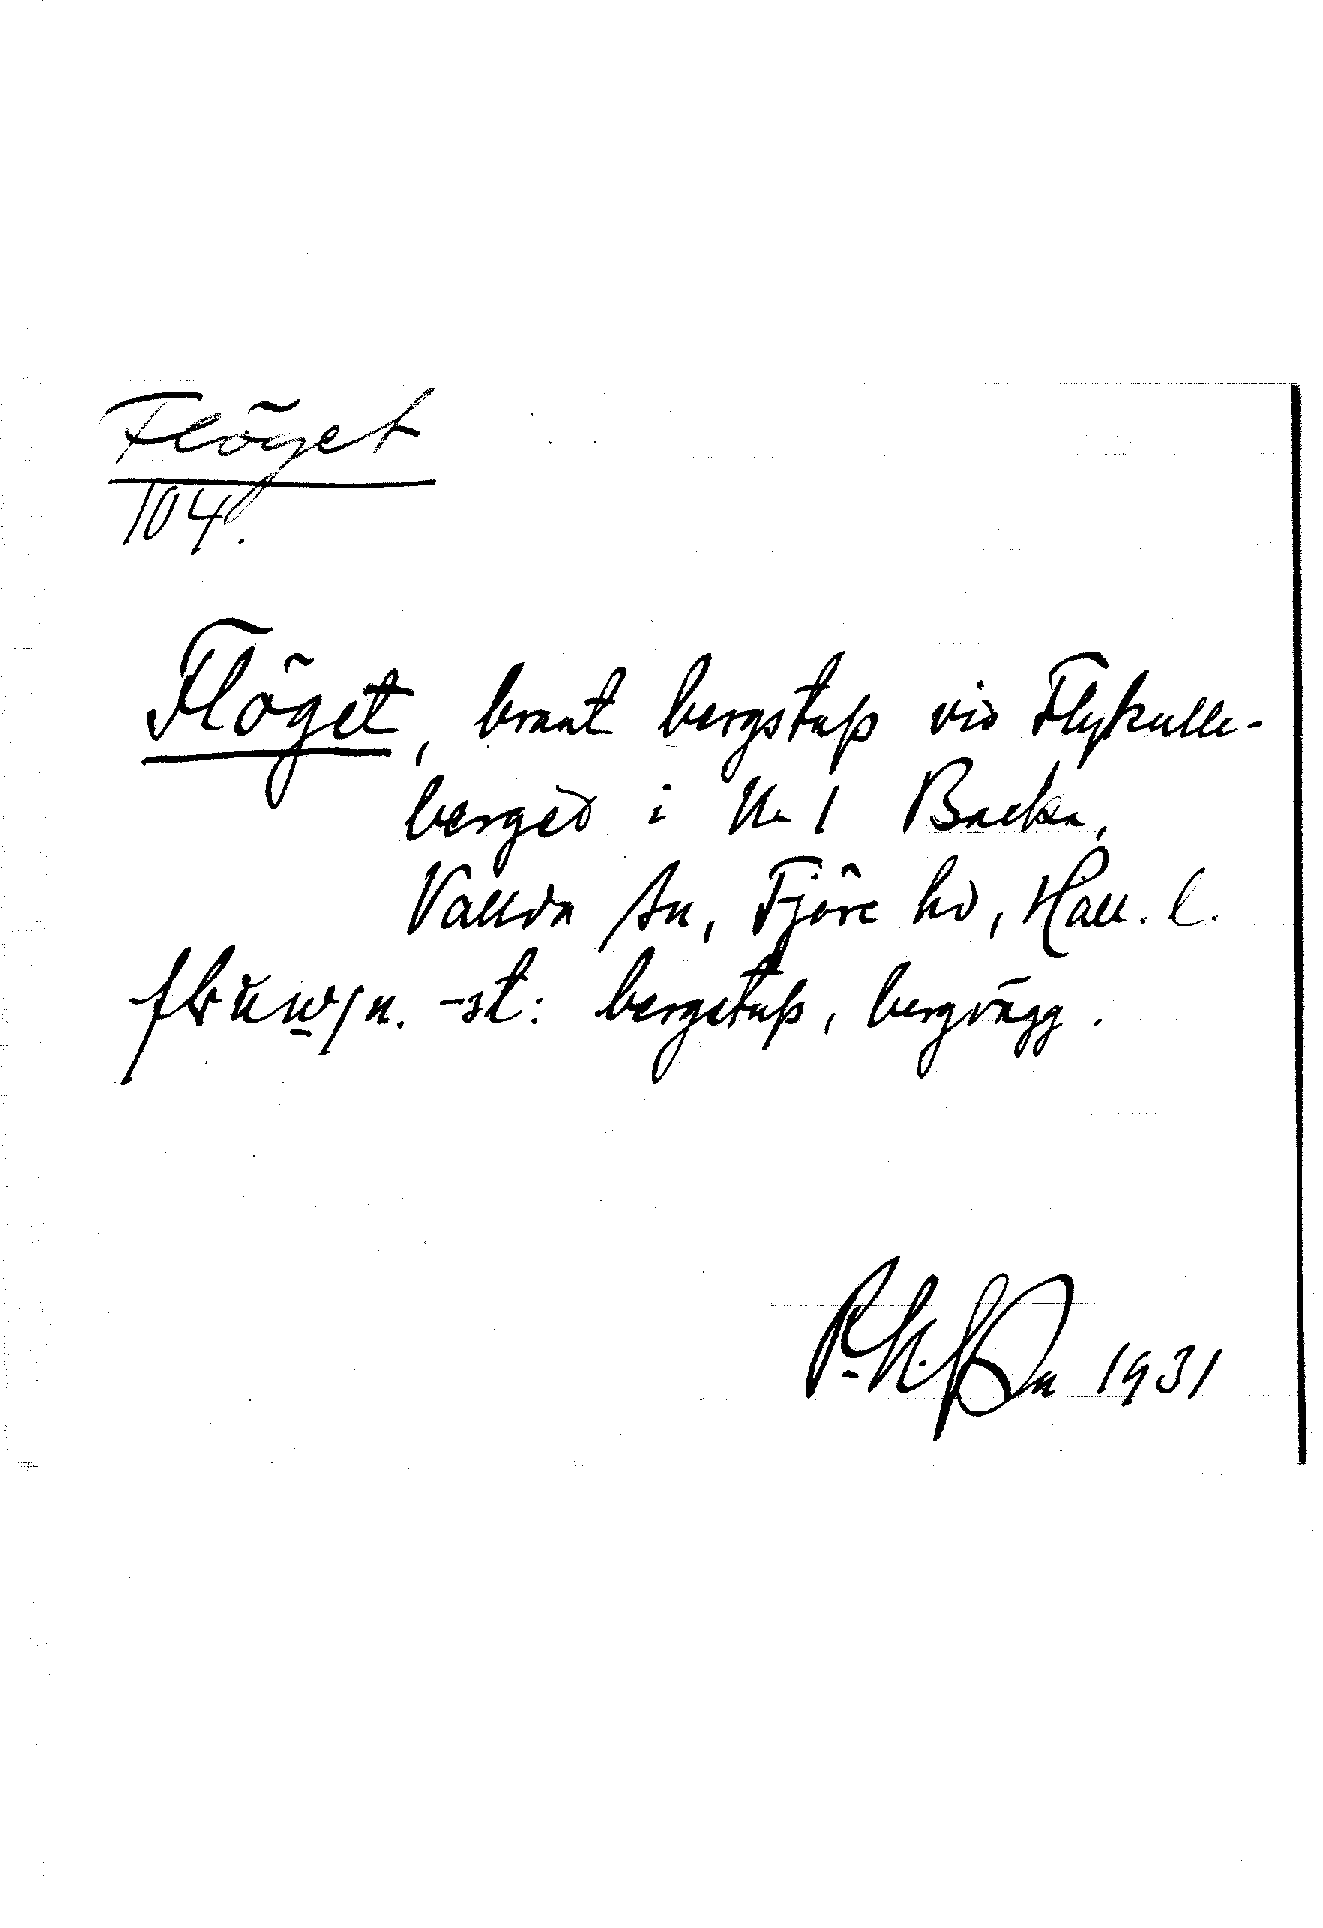 Flöget
104.
Flöget, brant bergstup vid Flykulle-
berged i N:o 1 Backa,
Vallda sn, Fjäre hd, Hall. l.
n. -st: bergstup, bergvägg.
1931